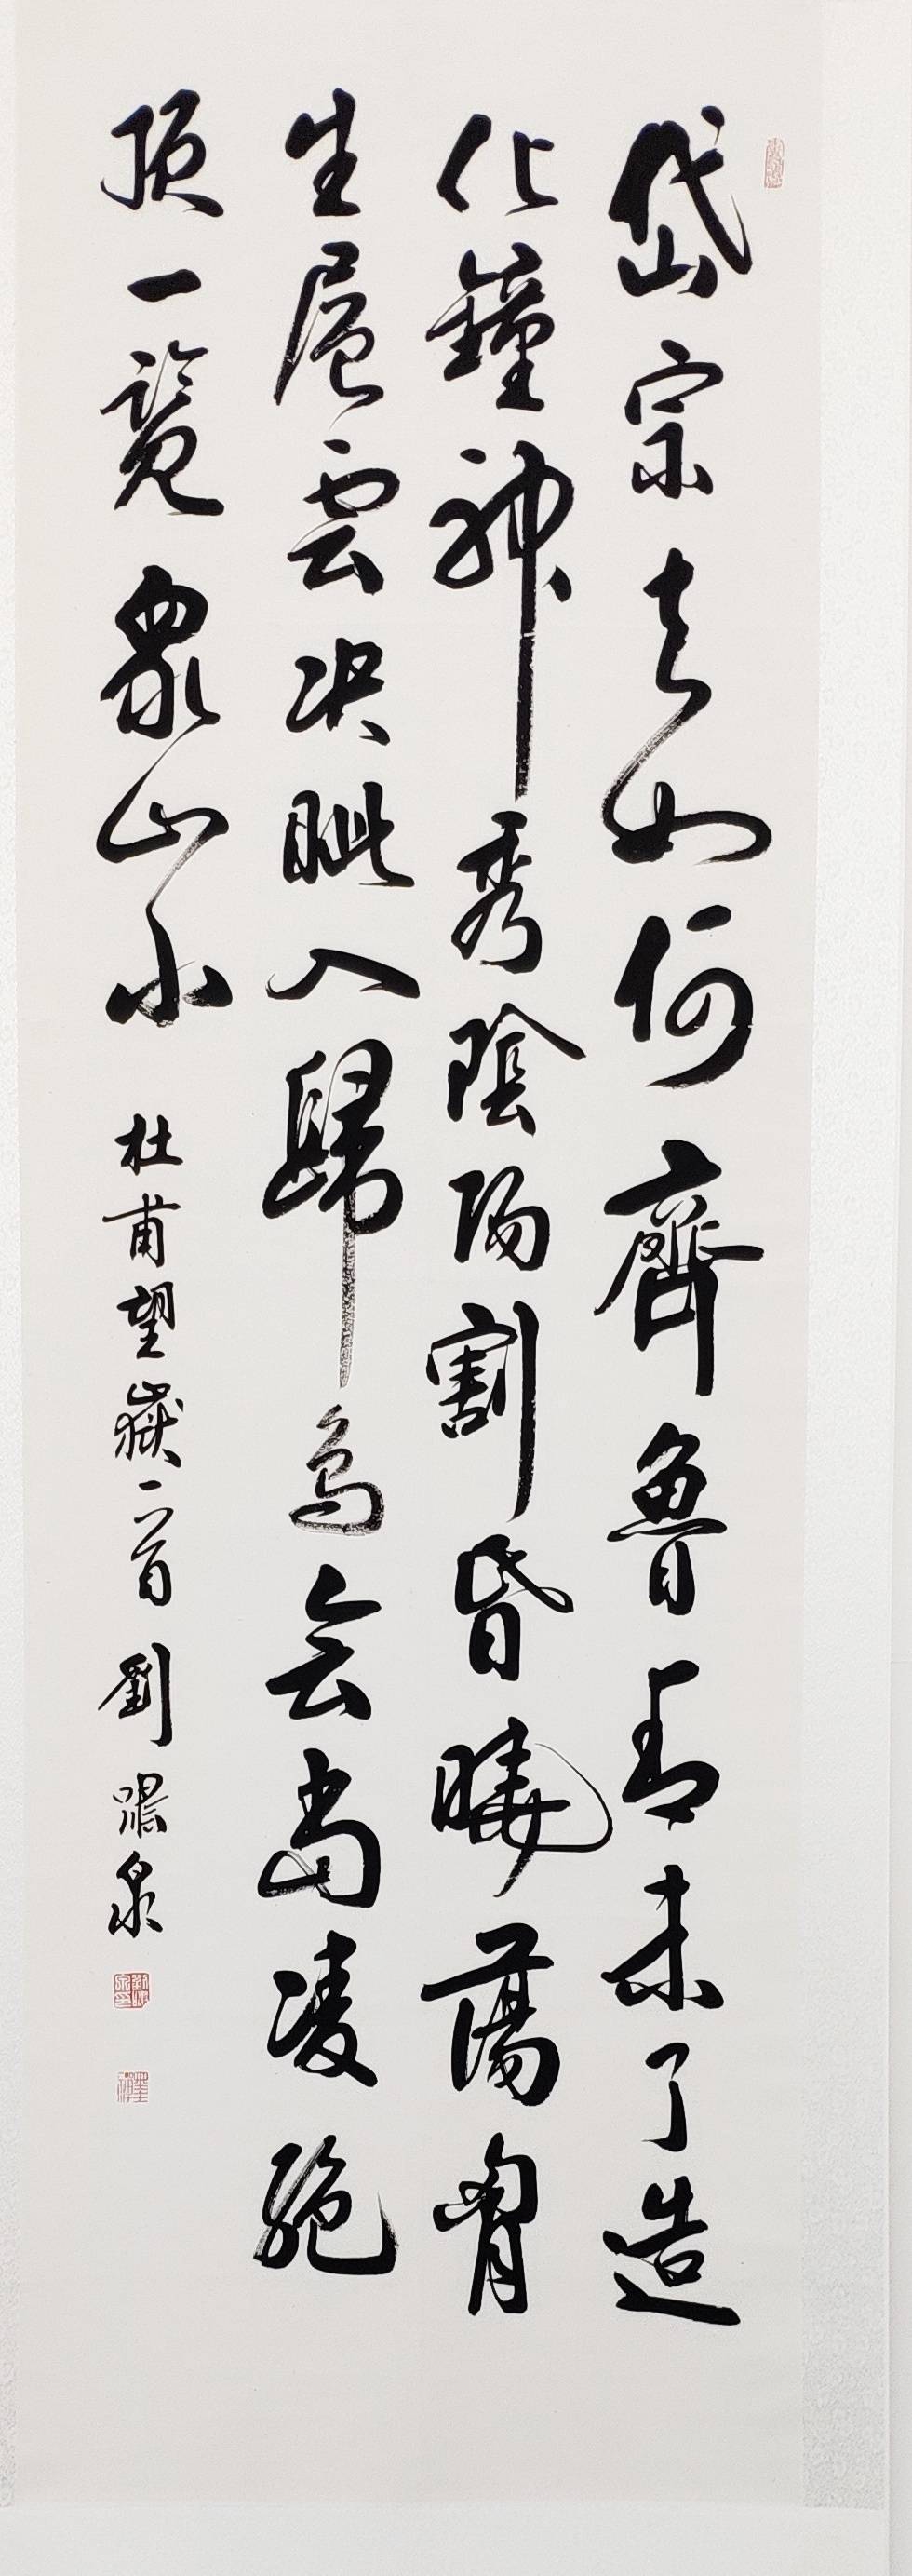 岱宗夫如何齊魯青未了造
化鐘神秀陰陽割昏曉蕩胷
生層雲决眥入歸鳥會當凌絶
頂一覽衆山小
杜甫望嶽一首 劉啸泉